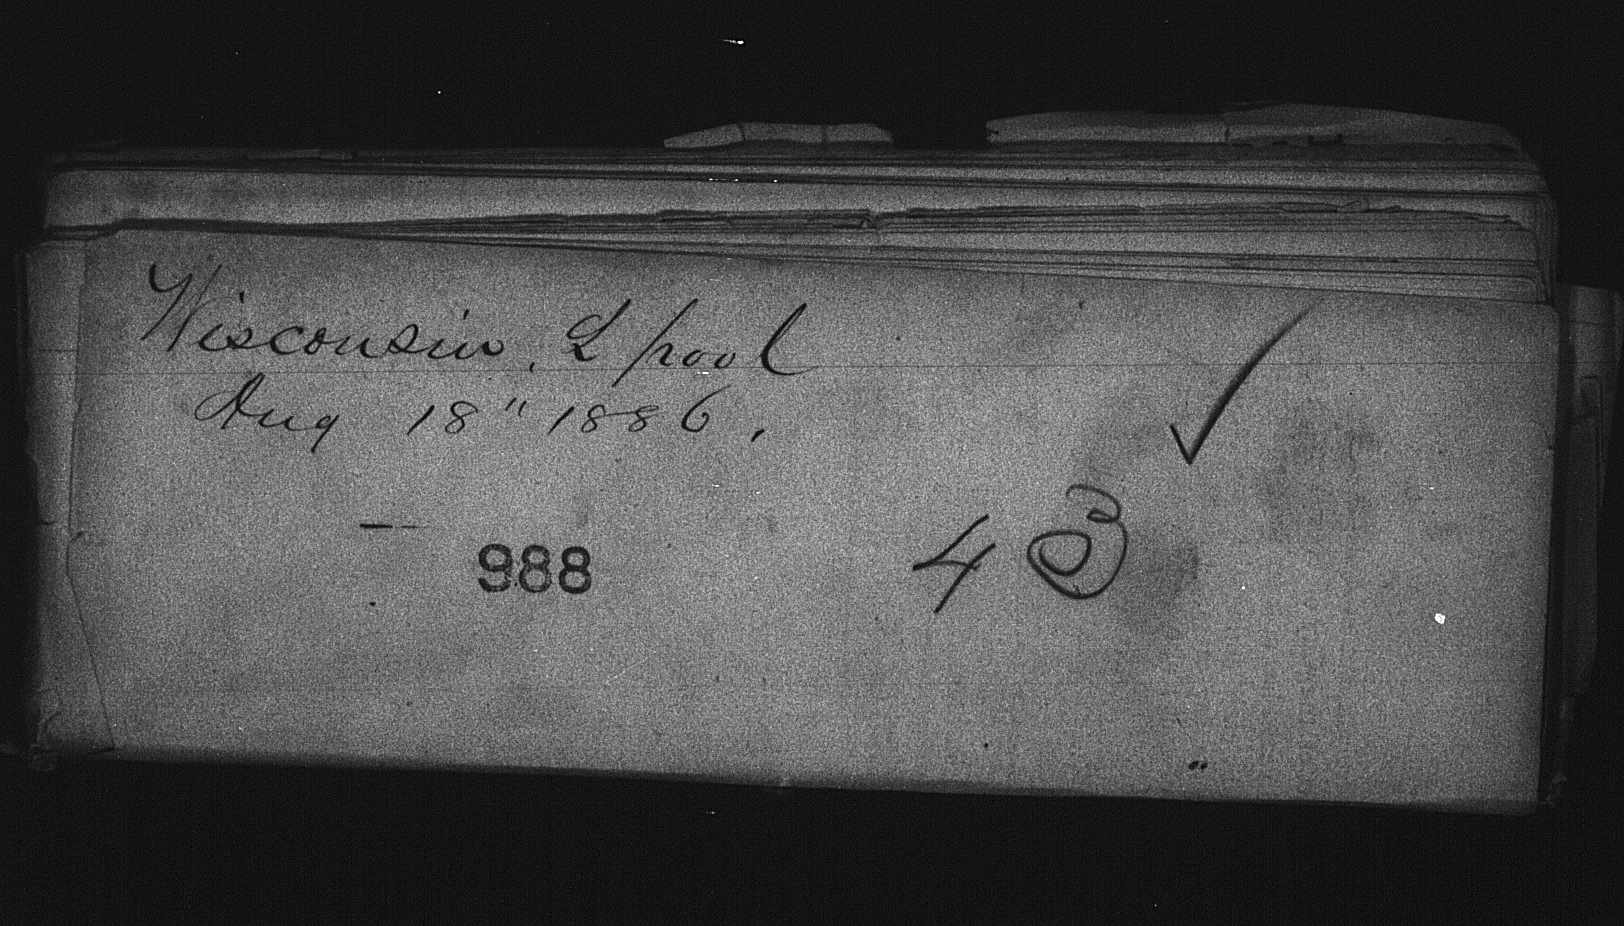 Wisconsin. L'pool
Aug 18" 1886.
988
403
✓